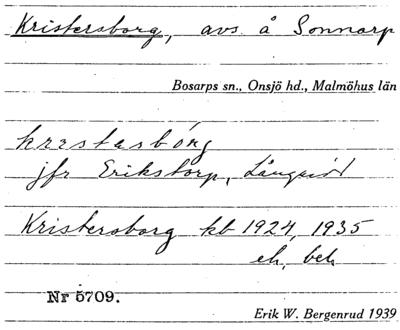 Kristersborg, avs. å Sonnarp
Bosarps sn., Onsjö hd., Malmöhus län
krestasbórg
jfr Erikstorp, Långaröd
Kristersborg kb 1924, 1935
ek, bek
Nr 5709.
Erik W. Bergenrud 1939